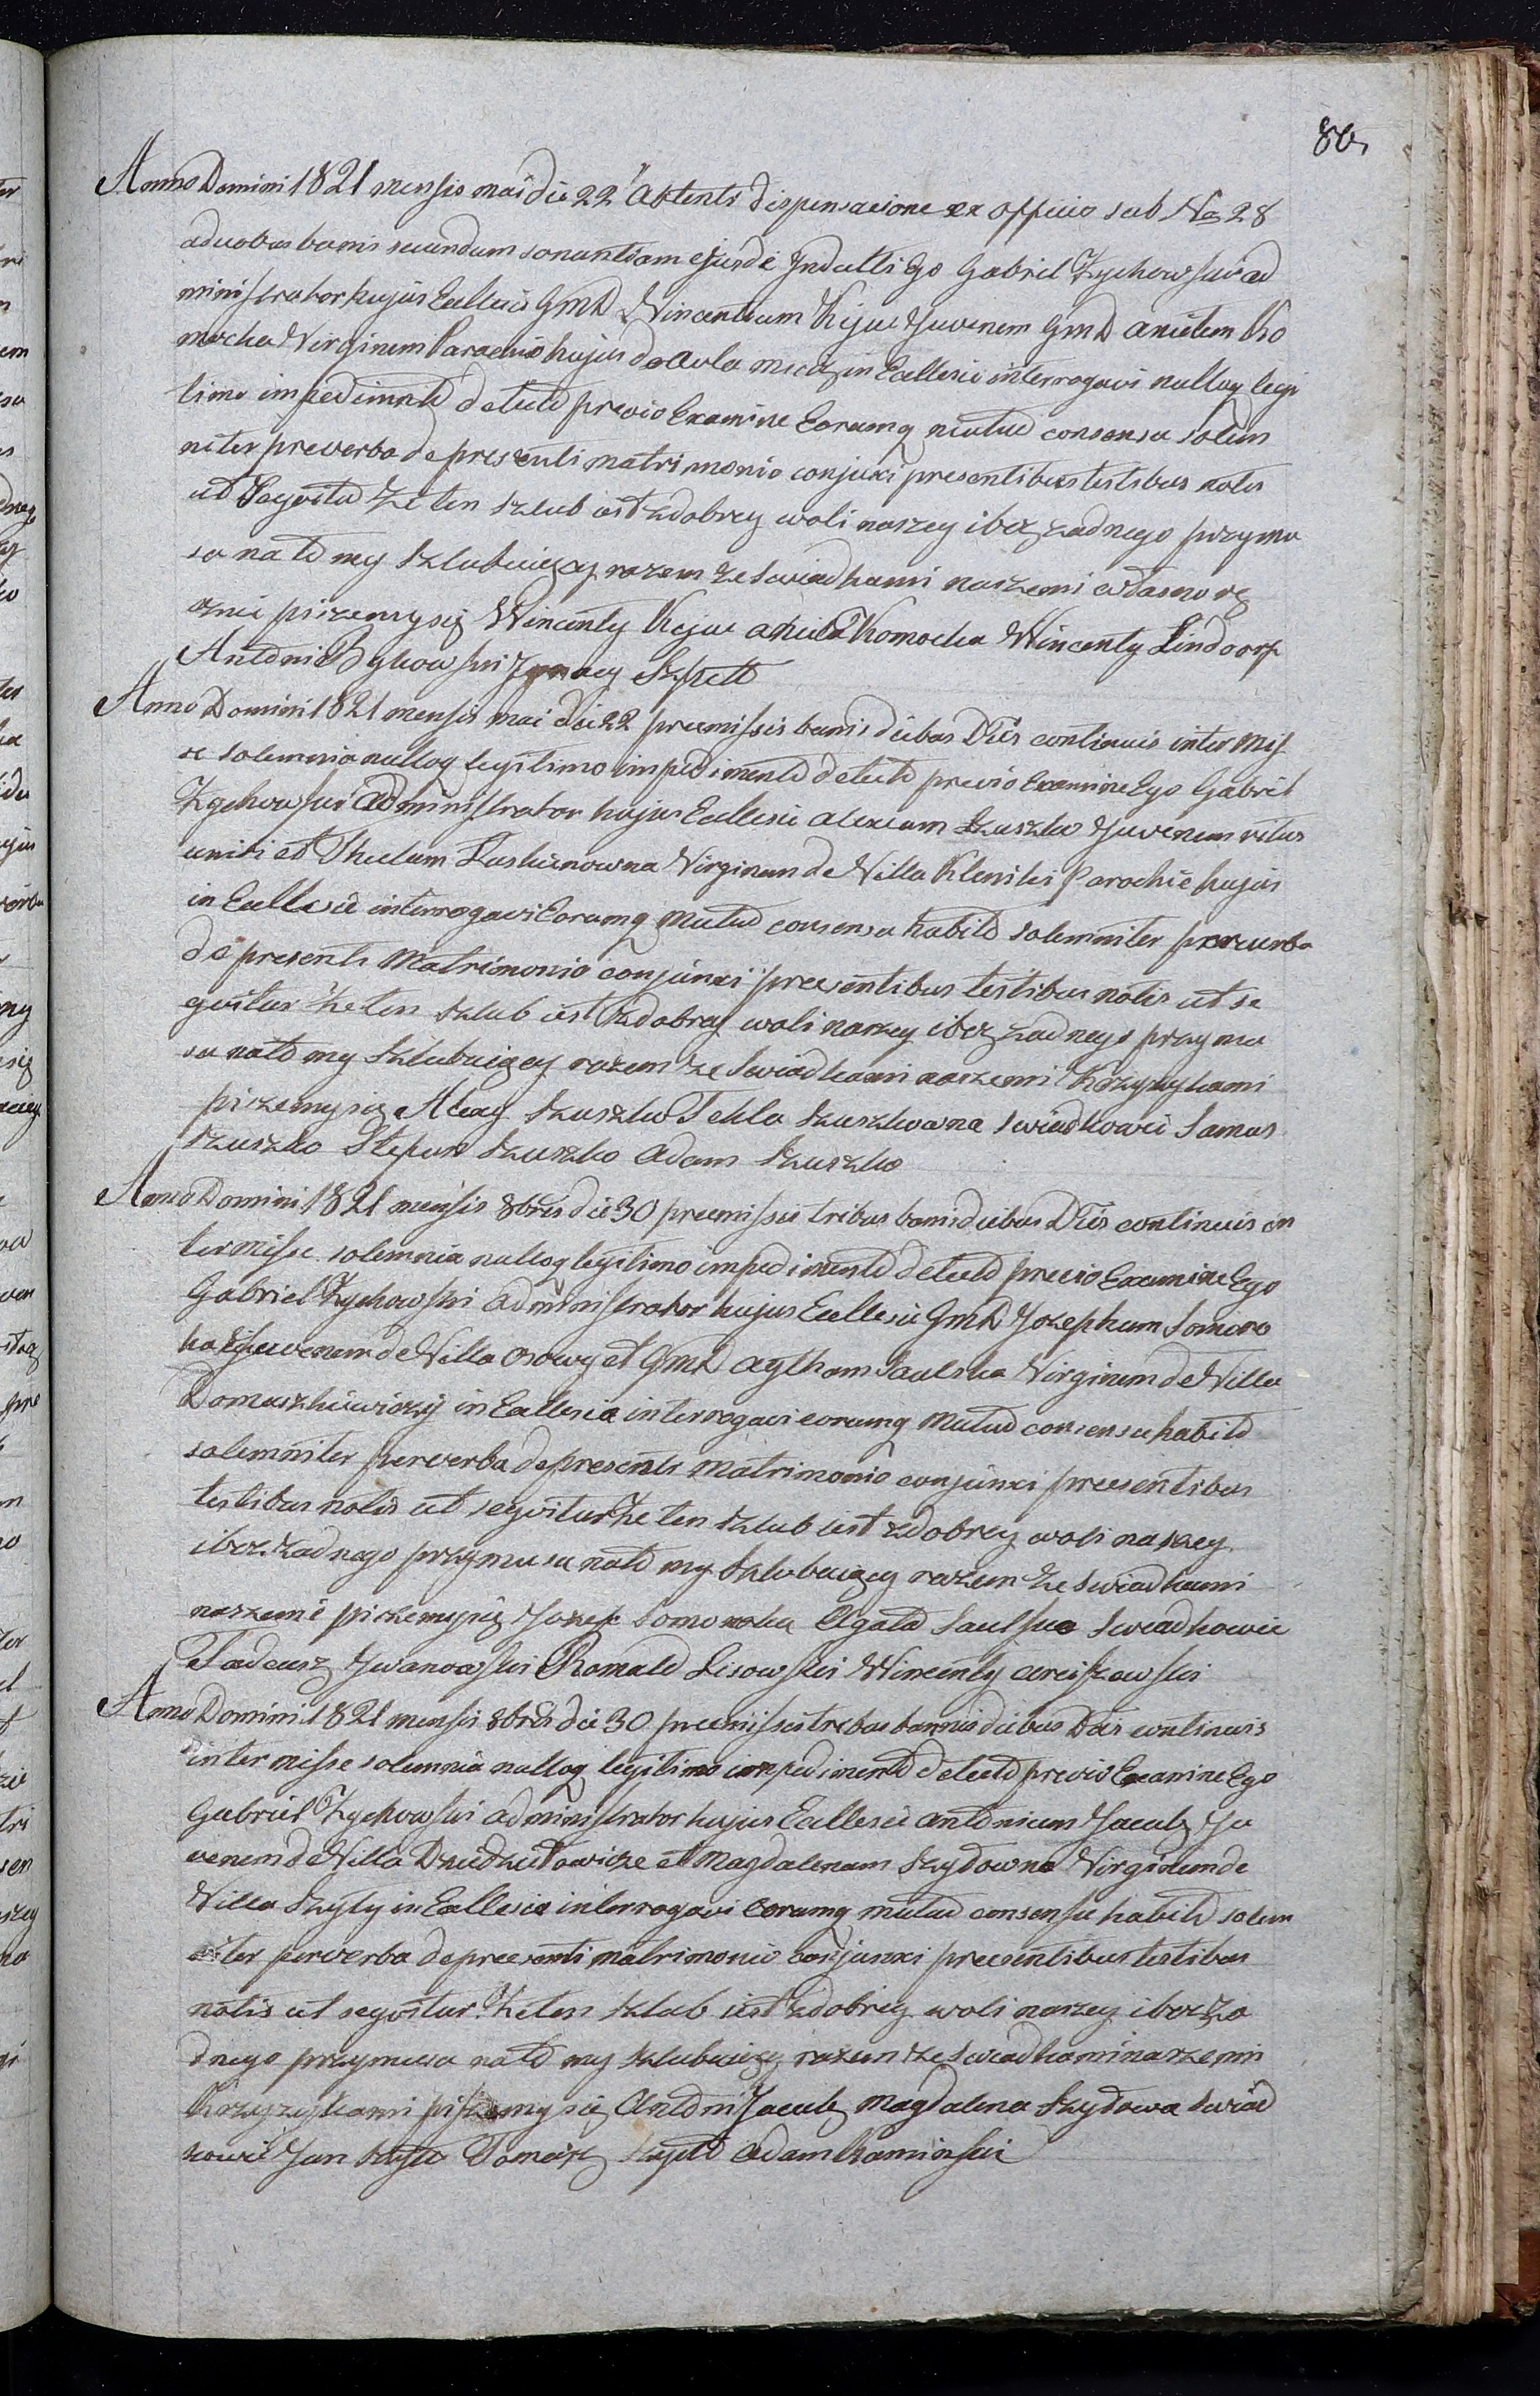 86,
Anno Domini 1821 mensis mai die 22 attenta dispensacione ex officio sub No 28
a duobus banis secundum sonantiam ejusde Indulti Ego Gabriel Zychowski ad
ministrator hujus Ecclesie GmD Vincentium Kijuc Juvenem GmD anielem Ko
mocka Virginem Parochie hujus de Aula in Ecclesie interrogavi nulloq legi
timo impedimnto detecto previo Examine Eorumq mutuo consensu solem
niter per verba de presenti matrimonio conjuxi presentibus testibus notis
ut Seqvitu Ze ten szlub iest z dobrey woli naszey i bez zadnego przymu
su na to my szlubuiący razem ze Swiadkami naszemi własno rę
cznie piszemy się Wincenty Kijuc aniela Komocka Wincenty Lindorf
Antoni Bykowski Jgnacy Szpett
Anno Domini 1821 mensis mai die 22 premissis banis diebus Dnis continuis inter mis
se solemnia nulloq legitimo impedimento detecto previo Examine Ego Gabriel
Zychowski Administrator hujus Ecclesie alexium Szuszko Juvenem ritus
uniti et Theclam Virginem de Villa Klenki Parochie hujus
in Ecclesie interrogavi Eorumq mutuo consensu habito solemniter per verba
de presenti Matrimonio conjunxi presentibus testibus notis ut se
qvitur Ze ten szlub iest z dobrey woli naszey i bez zadnego przymu
su na to my szlubuiący razem ze Swiadkami naszemi Krzyzykami
piszemy się Alexy Szuszko Tekla Szuszkowna swiadkowie Samus
Szuszko Stepan Szuszko Adam Szuszko
Anno Domini 1821 mensis 8bris die 30 premissis tribus banis diebus Dnis continuis in
ter misse solemnia nulloq legitimo impedimento detecto previo Examine Ego
Gabriel Zychowski administrator hujus Ecclesie GmD Josephum Somoro
ka Juvenem de Villa Osowy et GmD agtham Saulska Virginem de Villa
Domaszkiewiczy in Ecclesia interrogavi eorumq mutuo consensu habito
solemniter per verba de presenti Matrimonio conjunxi presentibus
testibus notis ut seqvitur Ze ten szlub iest z dobrey woli naszey
i bez zadnego przymusu na to my szlubuiący razem ze swiadkami
naszemi piszemy się Jozef Somoroka Agata Saulska Swiadkowie
Tadeusz Jwanowski Romald Lisowski Wincenty
Anno Domini 1821 mensis 8bris die 30 premissis trebus bannis diebus Dnis continuis
inter misse solemnia nulloq legitimo impedimento detecto previo Examine Ego
Gabriel Zychowski administrator hujus Ecclesie antonium Jacub Ju
venem de Villa et Magdalenam Szydowna Virginem de
Villa Szyły in Ecclesia interrogavi eorumq mutuo consensu habito solem
niter per verba de presenti matrimonio conjunxi presentibus testibus
notis ut seqvitur Ze ten szlub iest z dobrey woli naszey i bez za
dnego przymusu na to my szlubuiący razem ze swiadkami naszemi
Krzyzykami piszemy się Antoni Jacub Magdalena Szydowa swiad
kowie Jan Szyło Tomasz Szyło Adam Kaminski